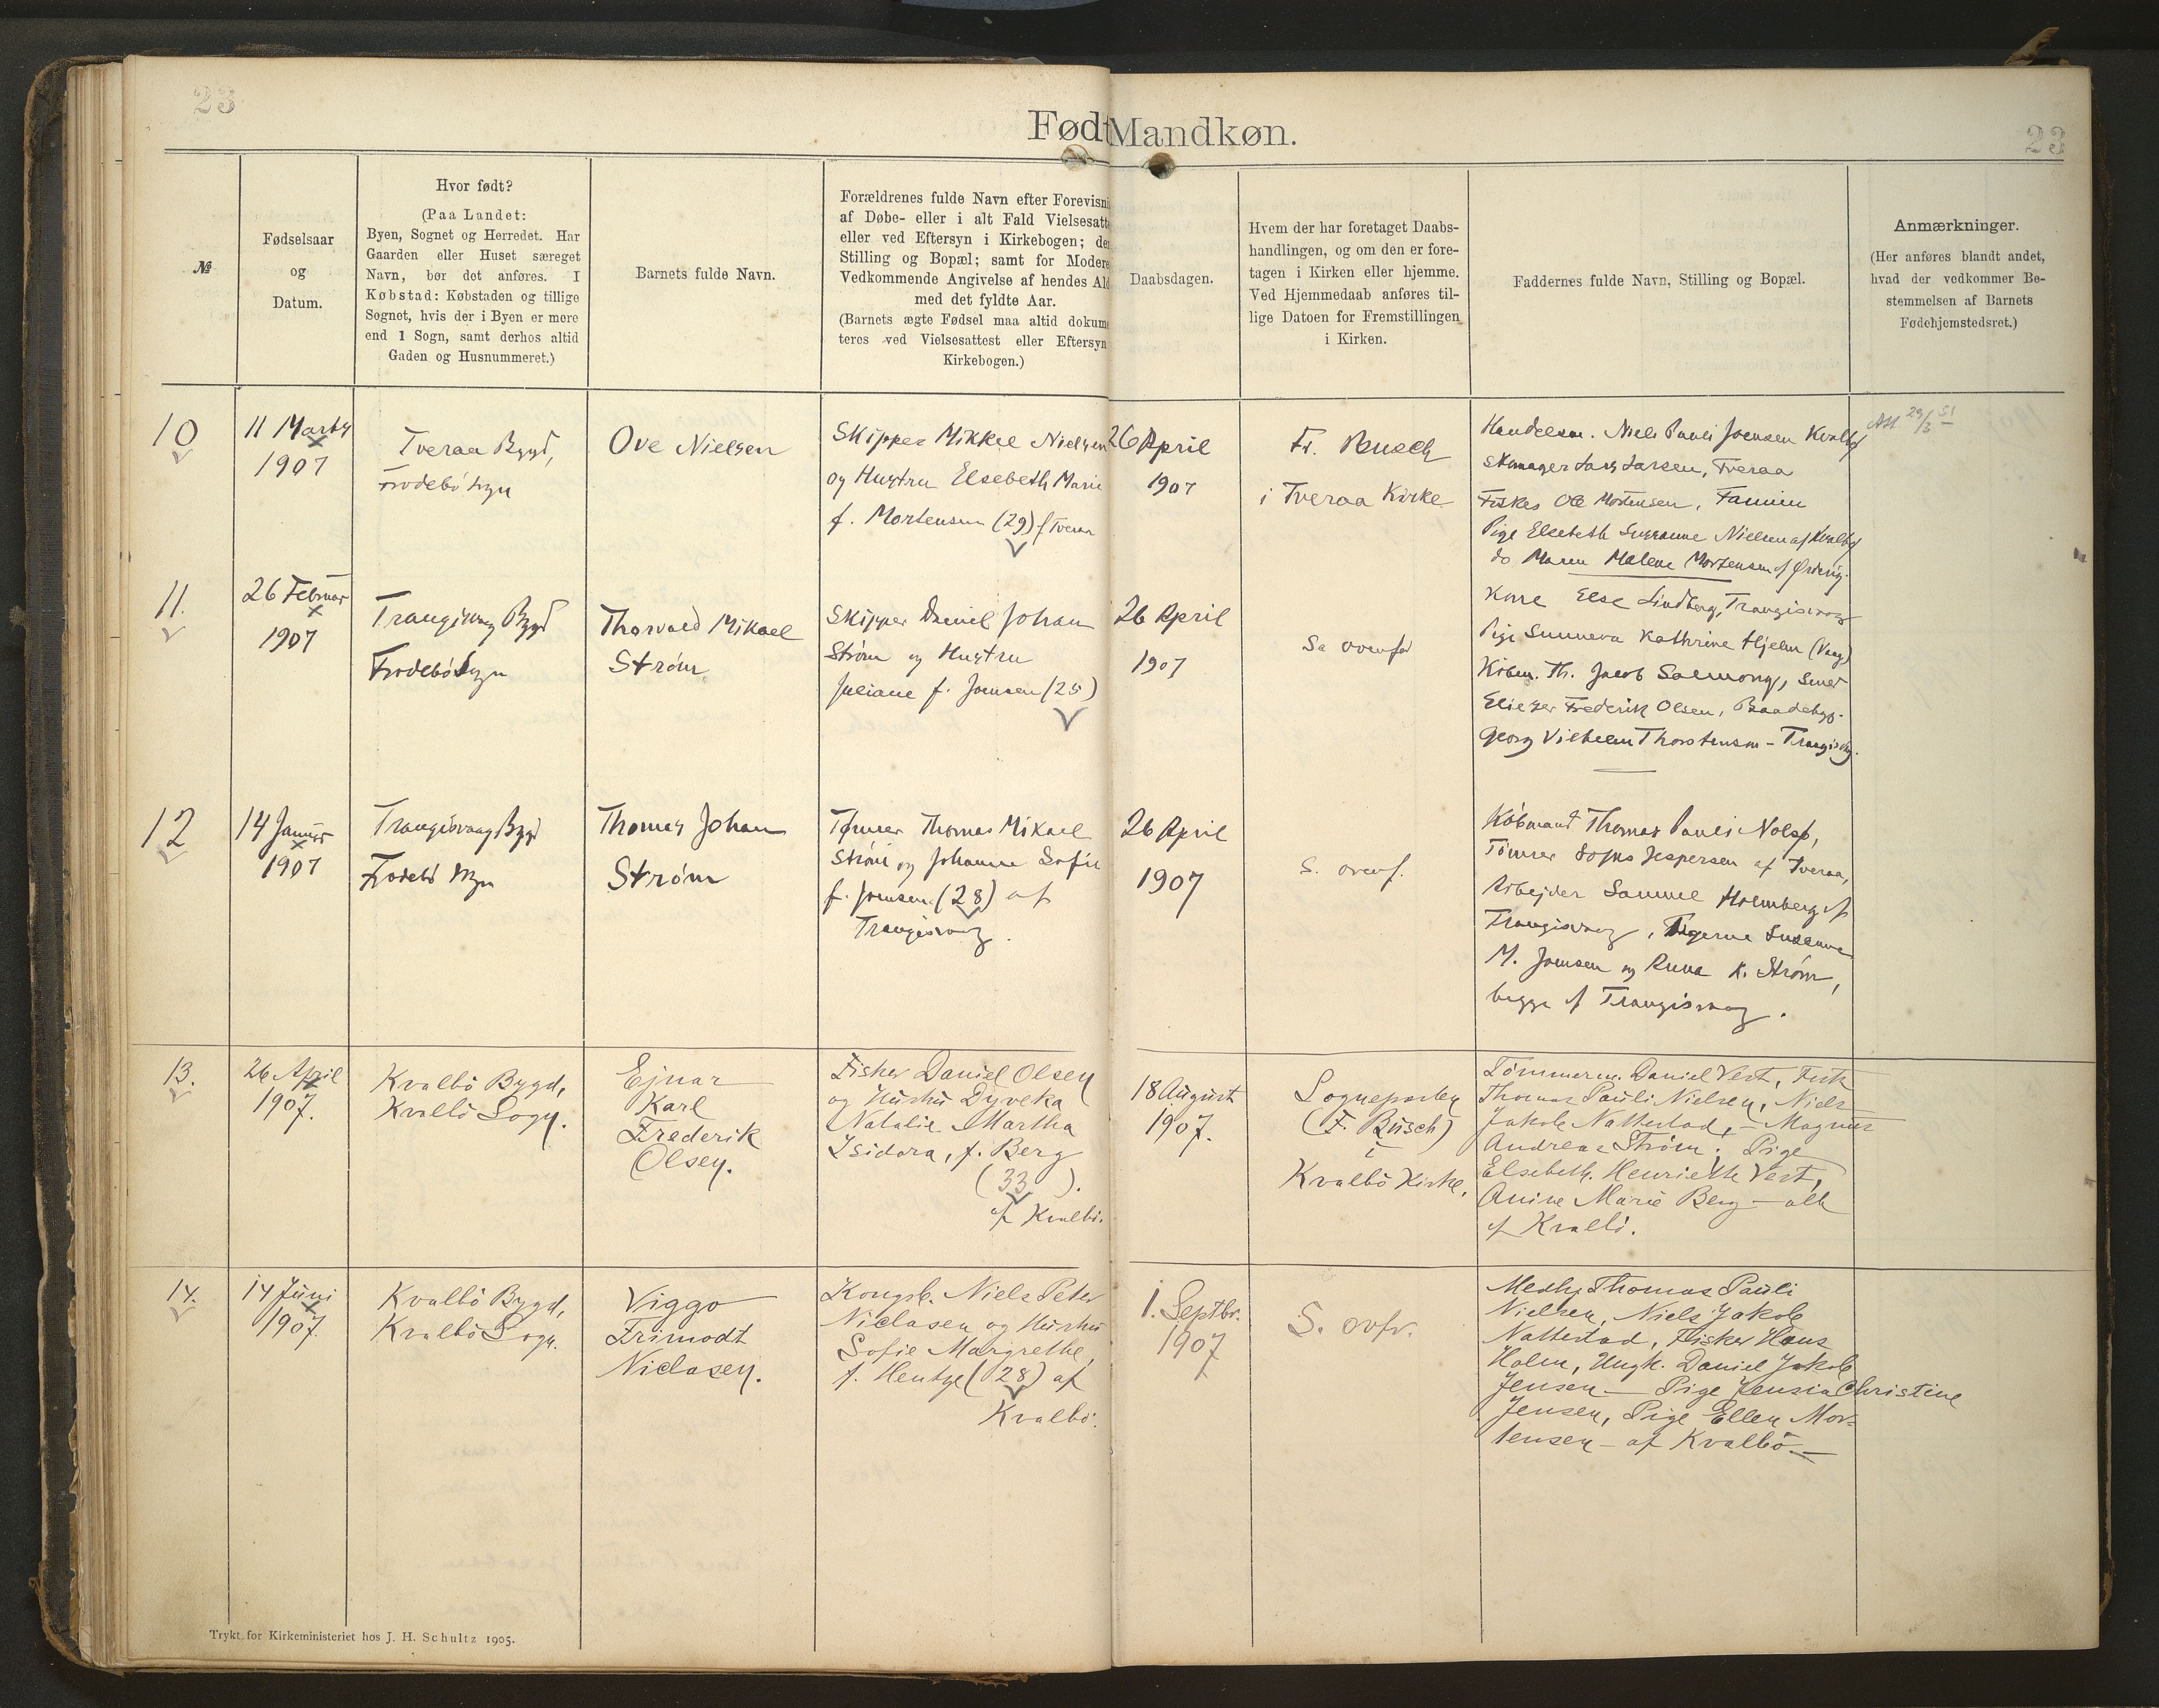 23
23
Født Mandkøn.
№
Fødselsaar
og
Datum.
Hvor født?
(Paa Landet:
Byen, Sognet og Herredet. Har
Gaarden eller Huset særeget
Navn, bør det anføres. I
Købstad: Købstaden og tillige
Sognet, hvis der i Byen er mere
end 1 Sogn, samt derhos altid
Gaden og Husnummeret.)
Barnets fulde Navn.
Forældrenes fulde Navn efter Forevisni
af Døbe- eller i alt Fald Vielsesatt
eller ved Eftersyn i Kirkebogen; de
Stilling og Bopæl; samt for Modere
Vedkommende Angivelse af hendes Al
med det fyldte Aar.
(Barnets ægte Fødsel maa altid dokum
teres ved Vielsesattest eller Eftersyn
Kirkebogen.)
Daabsdagen.
Hvem der har foretaget Daabs-
handlingen, og om den er fore-
tagen i Kirken eller hjemme.
Ved Hjemmedaab anføres til-
lige Datoen for Fremstillingen
i Kirken.
Faddernes fulde Navn, Stilling og Bopæl.
Anmærkninger.
(Her anføres blandt andet,
hvad der vedkommer Be-
stemmelsen af Barnets
Fødehjemstedsret.)
10
11 Marts
1907
Tveraa Bygd,
Frodebö Sogn
Ove Nielsen
Skipper Mikkel Nielsen
og Hustru Elsebeth Marie
f. Mortensen (29) f Tveraa
26 April
1907
Fr. Busch
i Tveraa Kirke
Handelsm. Niels Pauli Joensen Kvalbø
Skomager Lars Larsen, Tveraa
Fisker Ole Mortensen, Famien
Pige Elsebeth Susanne Nielsen af Kvalbø
do Maren Malene Mortensen af Ørderig.
Att 29/3 51
11.
26 Februar
1907
Trangisvaag Bygd
Frodebö Sogn
Thorvald Mikael
Strøm
Skipper Daniel Johan
Strøm og Hustru
Juliane f. Joensen (25)
26 April
1907
Se ovenfor
Kone Else Lindberg, Trangisvaag
Pige Sunneva Kathrine Hjelm (Vaag)
Købm. Th. Jacob Salmony, Smed
Eliezer Frederik Olsen, Baadebyg.
Georg Vilhelm Thorstensen - Trangisvg.
12
14 Januar
1907
Trangisvaag Bygd
Frodebö Sogn
Thomas Johan
Strøm
Tømrer Thomas Mikael
Strøm og Johanne Sofie
f. Joensen (28) af
Trangisvaag.
26 April
1907
S. ovenf.
Købmand Thomas Pauli Nolsø,
Tömrer Sofus Jespersen af Tveraa,
Arbejder Samuel Holmberg af
Trangisvaag, Pigerne Susanne
M. Joensen og Anna K. Strøm,
begge af Trangisvaag.
13.
26 April
1907.
Kvalbö Bygd,
Kvalbö Sogn.
Ejnar
Karl
Frederik
Olsen.
Fisker Daniel Olsen
og Hustru Dyveka
Natalie Martha
Isidora, f. Berg
(33).
af Kvalbö.
18 August
1907.
Sognepræsten
(F. Busch)
i
Kvalbö Kirke.
Tömmerm. Daniel Vest, Fisk
Thomas Pauli Nielsen, Niels
Jakob Nattestad, – Magnus
Andreas Strøm; Pige
Elsebeth Henriette Vest,
Anine Marie Berg – alle
af Kvalbö.
14.
14 Juni
1907.
Kvalbö Bygd,
Kvalbö Sogn.
Viggo
Frimodt
Niclasen.
Kongsb. Niels Peter
Niclasen og Hustru
Sofie Margrethe,
f. Hentze (28) af
Kvalbö.
1. Septbr.
1907
S. ovfr.
Medhj. Thomas Pauli
Nielsen, Niels Jakob
Nattestad, Fisker Hans
Holm, Ungk. Daniel Jakob
Jensen – Pige Jensia Christine
Jensen, Pige Ellen Mor-
tensen – af Kvalbö –
Trykt for Kirkeministeriet hos J. H. Schultz 1905.